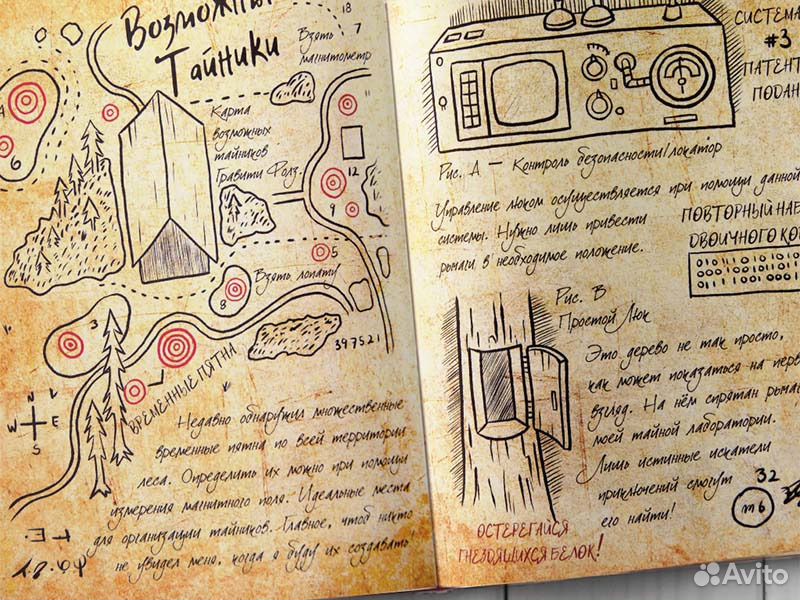 Возможны
Тайники
18
7
Взять
магнитометр
Карта
возможных
тайников
Гравити Фолз.
6
12
9
5
Взять лопату
8
3
397521
ВРЕМЕННЫЕ ПЯТНА
N
W E
S
Недавно обнаружил множественные
временные пятна по всей территории
леса. Определить их можно при помощи
измерения магнитного поля. Идеальные места
для организации тайников. Главное, чтоб никто
не увидел меня, когда я буду их создавать
СИСТЕМА
#3
ПАТЕНТ
ПОДАН
Рис. А — Контроль безопасности/локатор
Управление люком осуществляется при помощи данной
системы. Нужно лишь привести
рычаги в необходимое положение.
ПОВТОРНЫЙ НАБ
ДВОИЧНОГО КО
Рис. В
Простой Люк
Это дерево не так просто,
как может показаться на пер
взгляд. На нём спрятан рычаг
моей тайной лаборатории.
Лишь истинные искатели
приключений смогут
его найти!
32
m6
ОСТЕРЕГАЙСЯ
ГНЕЗДЯЩИХСЯ БЕЛОК!
Avito